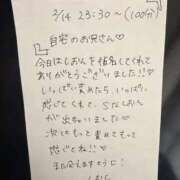 2/14 23:30〜(100分)
自宅のお兄さん♡
今日はしおんを指名してくれて
ありがとうございました!!♡
いっぱい責めたら、いっぱい
感じてくれて、Sなしおん
が出ちゃいました♡
次はもっと責めてもっと
感じてね!!♡
また会えますように!
しおん